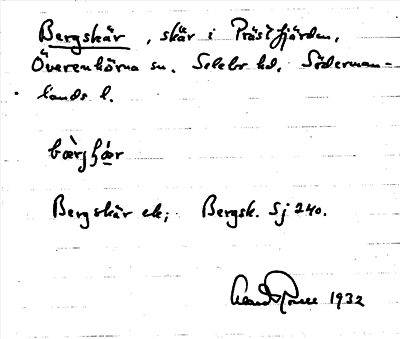 Bergskär, skär i Prästfjärden,
Överenhörna sn. Selebo hd. Söderman-
lands l.
Bergskär ek; Bergsk. Sj 240.
1932